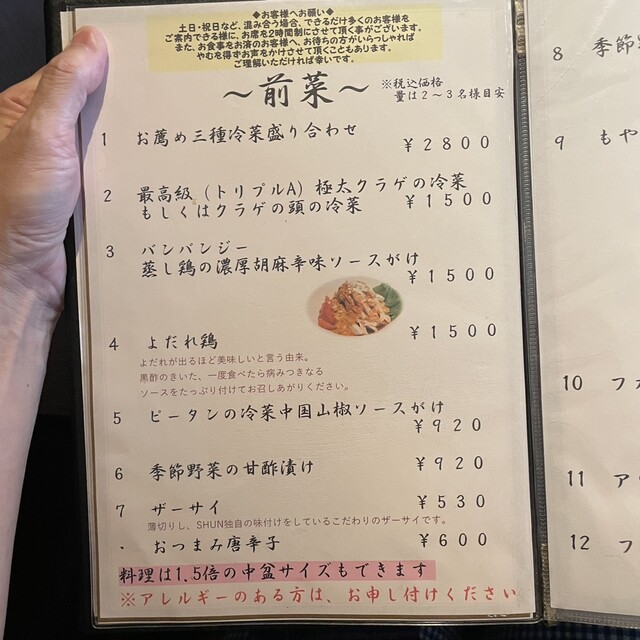 ◆お客様へお願い◆
土日・祝日など、混み合う場合、できるだけ多くのお客様を
ご案内できる様に、お席を2時間制にさせて頂く事がございます。
また、お食事をお済のお客様へ、お待ちの方がいらっしゃれば
やむを得ずお声をかけさせて頂くこともあります。
ご理解いただければ幸いです。
～前菜～
※税込価格
量は2～3名様目安
1 お薦め三種冷菜盛り合わせ
¥2800
2 最高級（トリプルA）極太クラゲの冷菜
もしくはクラゲの頭の冷菜 ¥1500
3 バンバンジー
蒸し鶏の濃厚胡麻辛味ソースがけ
¥1500
4 よだれ鶏 ¥1500
よだれが出るほど美味しいと言う由来。
黒酢のきいた、一度食べたら病みつきなる
ソースをたっぷり付けてお召しあがりください。
5 ピータンの冷菜中国山椒ソースがけ
¥920
6 季節野菜の甘酢漬け ¥920
7 ザーサイ ¥530
薄切りし、SHUN独自の味付けをしているこだわりのザーサイです。
・ おつまみ唐辛子 ¥600
料理は1.5倍の中盆サイズもできます
※アレルギーのある方は、お申し付けください
8 季節野
9 もや
10 フカ
11 ア
12 フ